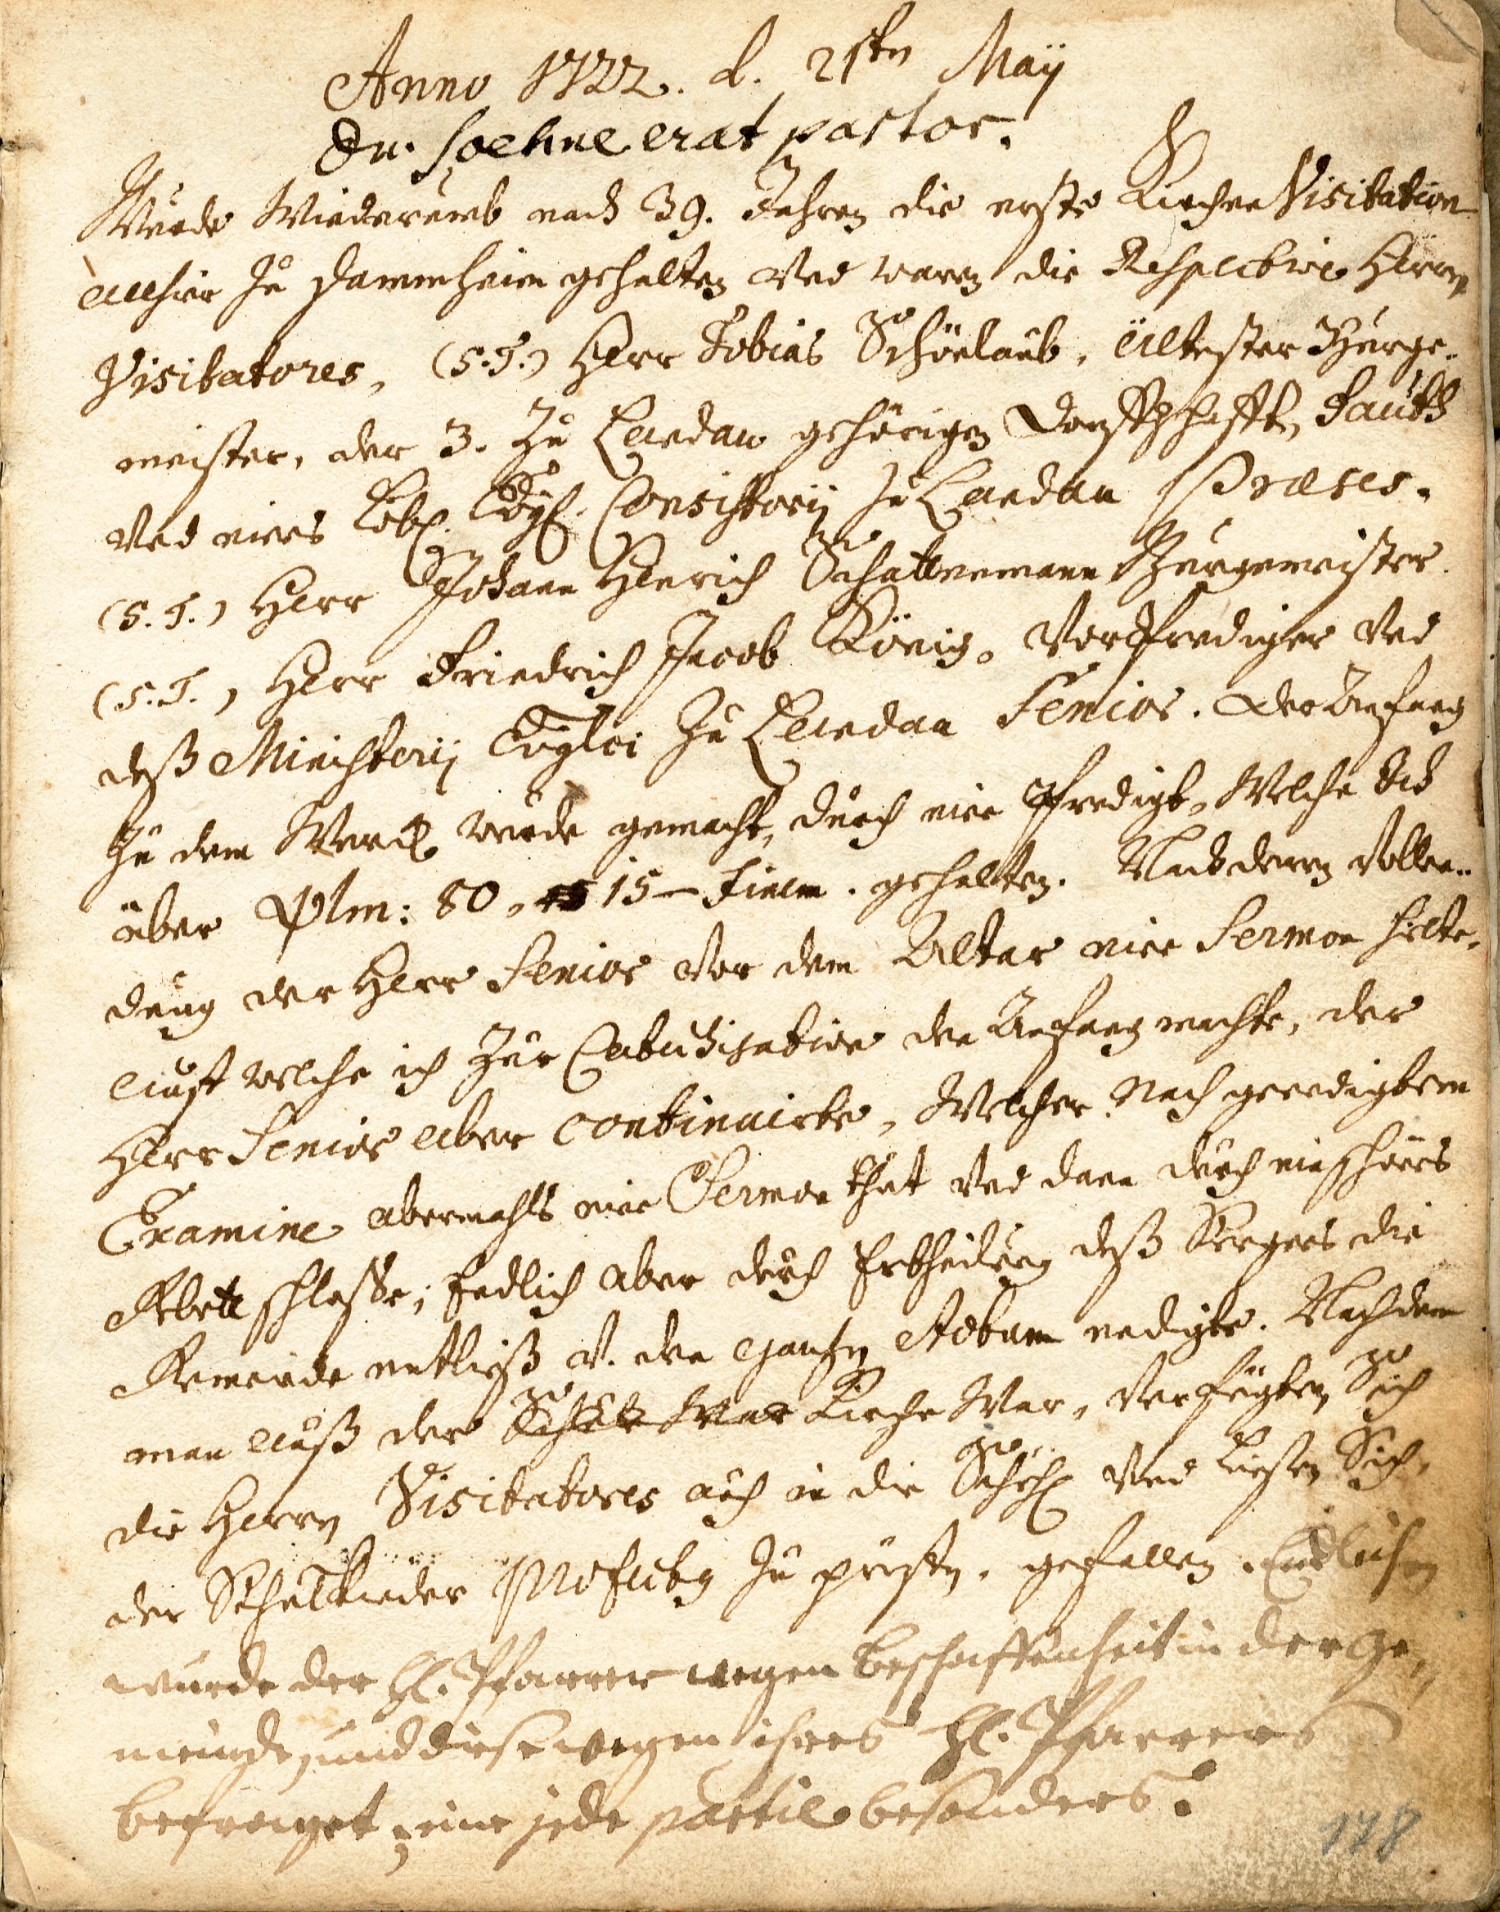 Anno 1722. d. 21ten Maÿ
Dn. Soehne erat pastor.
Wurde Wiederumb nach 39. Jahren die erste Kirchen Visitation
allhier zu Dammheim gehalten Und waren die Respective Herren
Visitatores, (S. T.) Herr Tobias Schönlaub, ältester Burge-
meister, der 3. zu Landau gehörigen Dorffschafften, Fauth
Und eines Löbl. Evgl. Consistorij zu Landau Præses.
(S. T.) Herr Johann Henrich Schattenmann Burgemeister.
(S. T.) Herr Friedrich Jacob König, Vorprediger Und
deß Ministerij Evglici zu Landau Senior. Der Anfang
zu dem Werck wurde gemacht, durch eine Predigt, Welche Ich
über Pslm: 80, 15 - Finem. gehalten. Nach deren Vollen-
dung der Herr Senior Vor dem Altar eine Sermon hielte,
auff welche ich zur Catechisation den Anfang machte, der
Herr Senior aber continuirte, Welcher Nach geendigtem
Examine abermahls eine Sermon that Und dann durch ein schönes
Gebett schlosse; Endlich aber durch Ertheilung deß Seegens die
Gemeinde entließ u. den gantzen Actum endigte. Nachdem
man auß der Kirche War, Verfügten Sich
die Herren Visitatores auch in die Schuhl Und ließen Sich,
der Schulkinder Profectg zu prüfen, gefallen. Endlichen
wurde der H. Pfarrer wegen beschaffenheit in der Ge-
meinde, und diese wegen ihres H. Pfarrers
befraget, eine jede partie besonders.
178